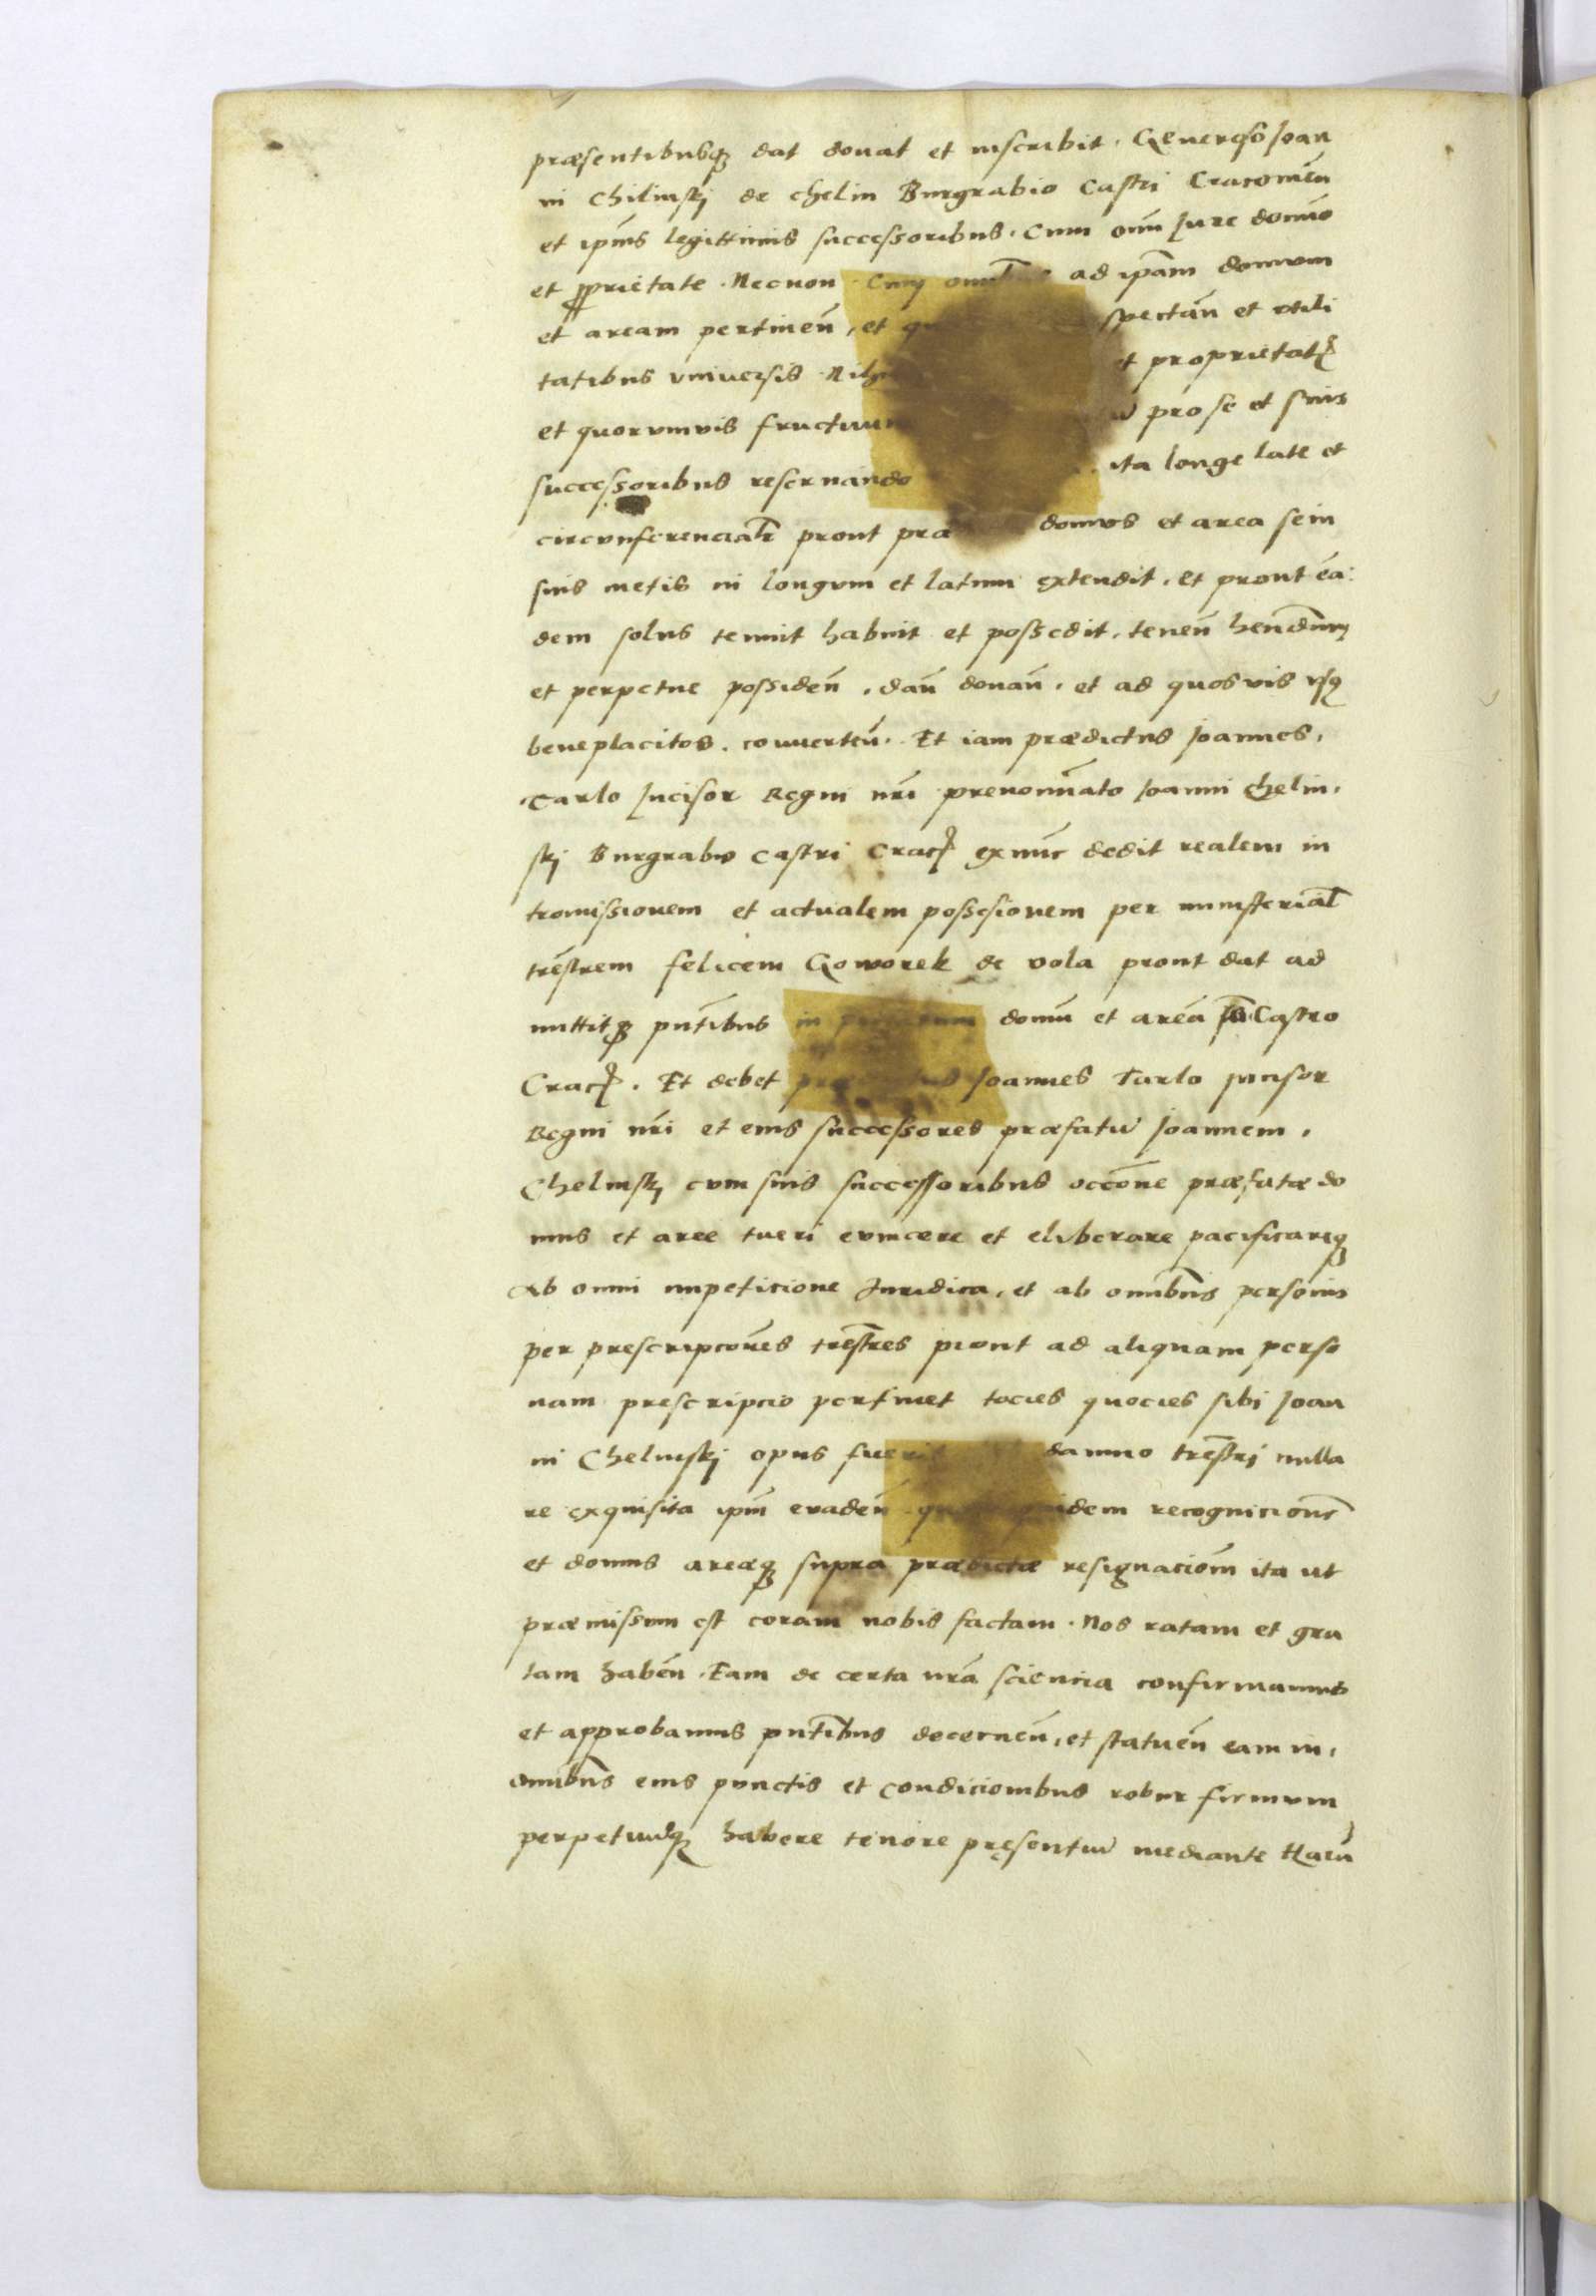 præsentibusq3 dat donat et inscribit. Generoso Joan
ni Chilinskj de chelm Burgrabio Castri Cracouien̄
et ip̄ius legittimis successoribus. Cum om̄i Jure domīo
et ꝓprietate. Necnon Cum omnib ad ip̄am domum
et aream pertinen̄, et spectan̄ et vtili
tatibus vniuersis. Nihi et proprietatꝭ
et quorumuis fructuum pro se et suis
successoribus reseruando ita longe late et
circunferencial̄r prout præ domus et area se in
suis metis in longum et latum extendit. et prout ea
dem solus tenuit habuit et possedit. tenen̄ hēndum
et perpetue possiden̄. dan̄ donan̄. et ad quosuis vsq
beneplacitos. conuerten̄. Et iam prædictus Joannes.
Tarlo Incisor Regni n̄ri prenomi̅ato Joanni chelin.
skj Burgrabio castri Cracꝭ ex nūc dedit realem in
tromissionem et actualem possesionem per ministerial̄
tr̄estrem felicem Goworek de vola prout dat ad
mittitq3 pn̄tibus in domū et areā in Castro
Cracꝭ. Et debet Joannes Tarlo incisor
Regni n̄ri et eius successores præfatū Joannem.
Chelinskj cum suis successoribus occōne præfatæ do
mus et aree tueri euincere et eliberare pacificareq3
ab omni impeticione Juridica, et ab omnibus personis
per prescripcōnes tr̄estres prout ad aliquam perso
nam prescripcio pertinet tocies quocies sibi Joan
ni Chelinskj opus fuerit damno tr̄estrj nulla
re exquisita ip̄m euaden̄ quidem recognicionē
et domus areæq3 supra prædictæ resignaciōm ita ut
præmissum est coram nobis factam. Nos ratam et gra
tam haben̄. Eam de certa n̄ra sciencia confirmamus
et approbamus pn̄tibus decernen̄, et statuen̄ eam in.
omnibus eius punctis et condicionibus robur firmum
perpetuūq3 habere tenore pręsentiū mediante Harū